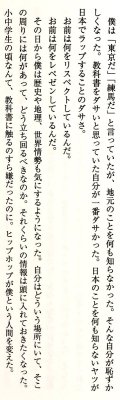 僕は「東京だ」「練馬だ」と言っていたが、地元のことを何も知らなかった。そんな自分が恥ずか
しくなった。教科書をダサいと思っていた自分が一番ダサかった。日本のことを何も知らないヤツが
日本でラップすることのダサさ。
お前は何をリスペクトしているんだ。
お前は何をレペゼンしているんだ。
その日から僕は歴史や地理、世界情勢も気にするようになった。自分はどういう場所にいて、そこ
の周りには何があって、どう立ち回るべきなのか。それくらいの情報は頭に入れておきたくなった。
小中学生の頃なんて、教科書に触るのすら嫌だったのに。ヒップホップが僕という人間を変えた。